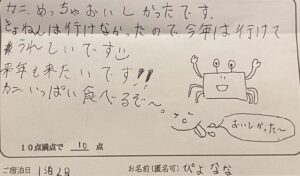 カニ、めっちゃおいしかったです。
きょねんは行けなかったので、今年は行けて
うれしいです
来年も来たいです!!
カニいっぱい食べるぞ〜。
おいしかった〜
10点満点で 10 点
ご宿泊日 1泊2日
お名前(匿名可) ぴょなな